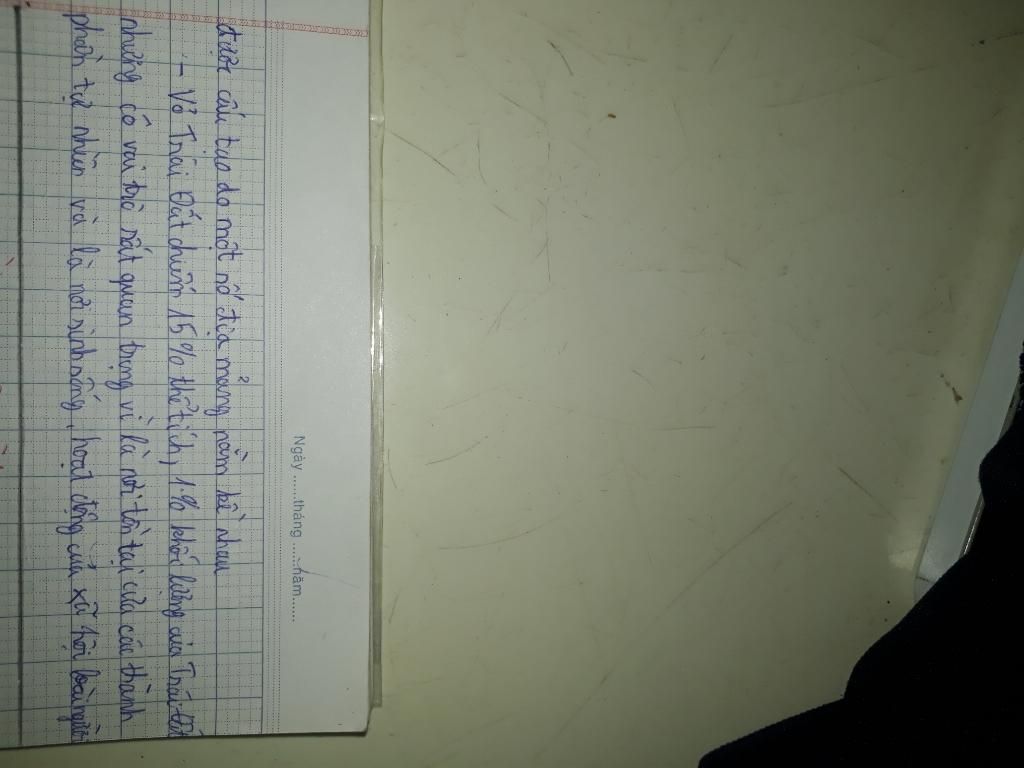 Ngày ......tháng ......năm......
được cấu tạo do một số địa mảng nằm kề nhau
- Vỏ Trái Đất chiếm 15% thể tích, 1% khối lượng của Trái đất
nhưng có vai trò rất quan trọng vì là nơi tồn tại của các thành
phần tự nhiên và là nơi sinh sống, hoạt động của xã hội loài người